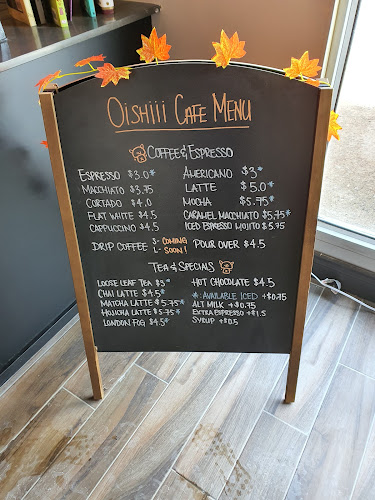 Oishiii Cafe Menu
Coffee & Espresso
Espresso $3.0*
Macchiato $3.75
Cortado $4.0
Flat White $4.5
Cappuccino $4.5
Americano $3*
Latte $5.0*
Mocha $5.75*
Caramel Macchiato $5.75*
Iced Espresso Mojito $5.75
Drip Coffee S- Coming
L- Soon!
Pour Over $4.5
Tea & Specials
Loose Leaf Tea $3*
Chai Latte $4.5*
Matcha Latte $5.75*
Hojicha Latte $5.75*
London Fog $4.5*
Hot Chocolate $4.5
*: Available Iced +$0.75
Alt Milk +$0.75
Extra Espresso +$1.5
Syrup +$0.5